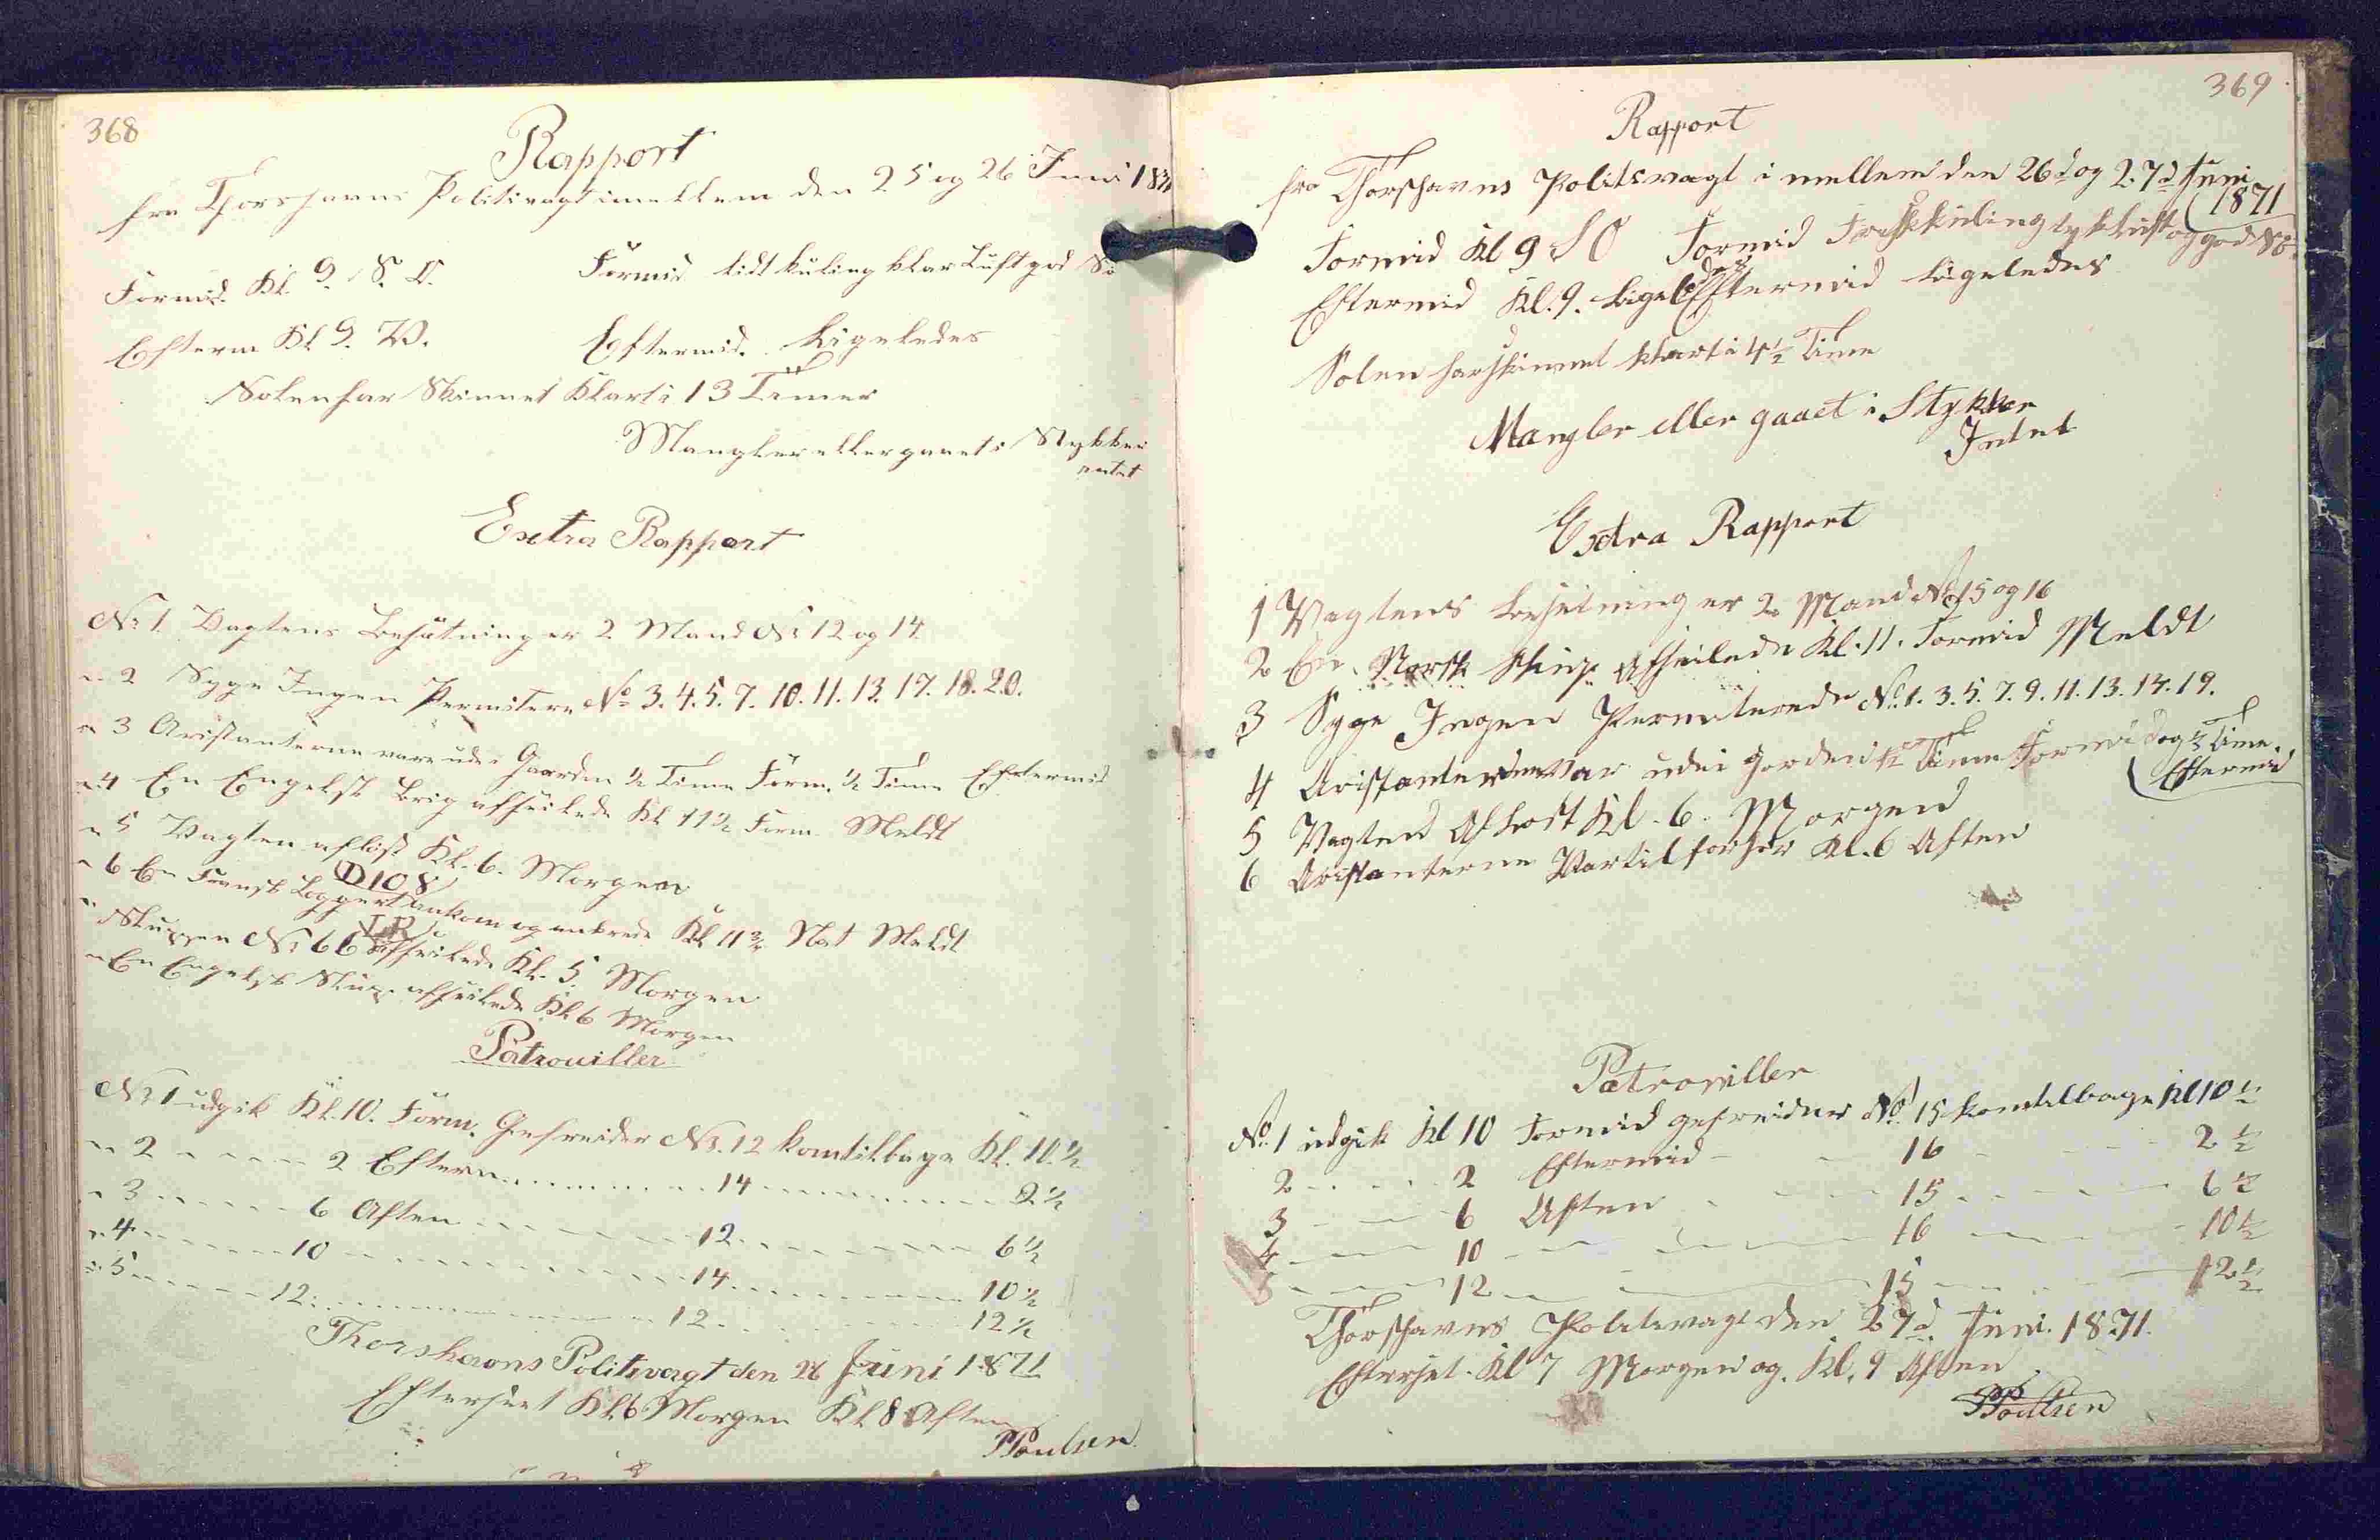 368
Rapport
fra Thorshavns Politivagt imellem den 25 og 26 Juni 1871
Formid. Kl. 9. S. O. Formid lidt Kuling klar Luft god Sö
Efterm Kl 9. V. Eftermid. Ligeledes
Solen har Skinnet Klart i 13 Timer
Mangler eller gaaet i Stykker
intet
Extra Rapport
No 1 Vagtens Besætning er 2 Mand No 12 og 14
" 2 Syge Ingen Permitere No 3. 4. 5. 7. 10. 11. 13. 17. 18. 20.
" 3 Aristanterne vare ude i Gaarden ½ Time Form. ½ Time Eftermid
" 4 En Engelsk Brig afseilede Kl 11½ Form. Meldt
" 5 Vagten aflöst Kl. 6. Morgen
D 108
" 6 En Fransk Loggert ankom og ankrede Kl 11¾ Nat Meldt
" Sluppen No 66 afseilede Kl. 5 Morgen
" En Engelsk Slup afseilede Kl 6 Morgen
Patrouiller
No 1 udgik Kl. 10. Form. Gefreider No. 12 kom tilbage Kl. 10.½
" 2 2 Efterm 14 2½
" 3 6 Aften 12 6½
" 4 10 14 10½
" 5 12 12 12½
Thorshavns Politivagt den 26 Juni 1871
Efterseet Kl 6 Morgen Kl 8 Aften
PPoulsen
369
Rapport
fra Thorshavns Politivagt i mellem den 26d og 27d Juni
1871
Formid Kl 9 SO Formid Frisk Kuling tyk Luft og god Sö
Eftermid Kl. 9. Ligeledes Eftermid Ligeledes
Solen har skinnet klart i 4½ Time
Mangler eller gaaet i Stykker
Intet
Extra Rapport
1 Vagtens Besetning er 2 Mand No 15 og 16
2 En Norsk Slup Afseilede Kl. 11. Formid Meldt
3 Syge Ingen Permiterede No. 1. 3. 5. 7. 9. 11. 13. 14. 19.
4 Aristanterne var ude i Gorden ½ Time Formid og ½ Time
Eftermid
5 Vagten Aflöst Kl. 6. Morgen
6 Aristanterne Var til forhör Kl. 6 Aften
Patrouiller
No. 1 udgik Kl 10 Formid gefreider No. 15 kom tilbage Kl 10½
2 2 Eftermid 16 2½
3 6 Aften 15 6½
4 10 16 10½
5 12 15 12½
Thorshavns Politivagt den 27d Juni. 1871.
Efterset. Kl 7 Morgen og. Kl. 9 Aften
PPoulsen